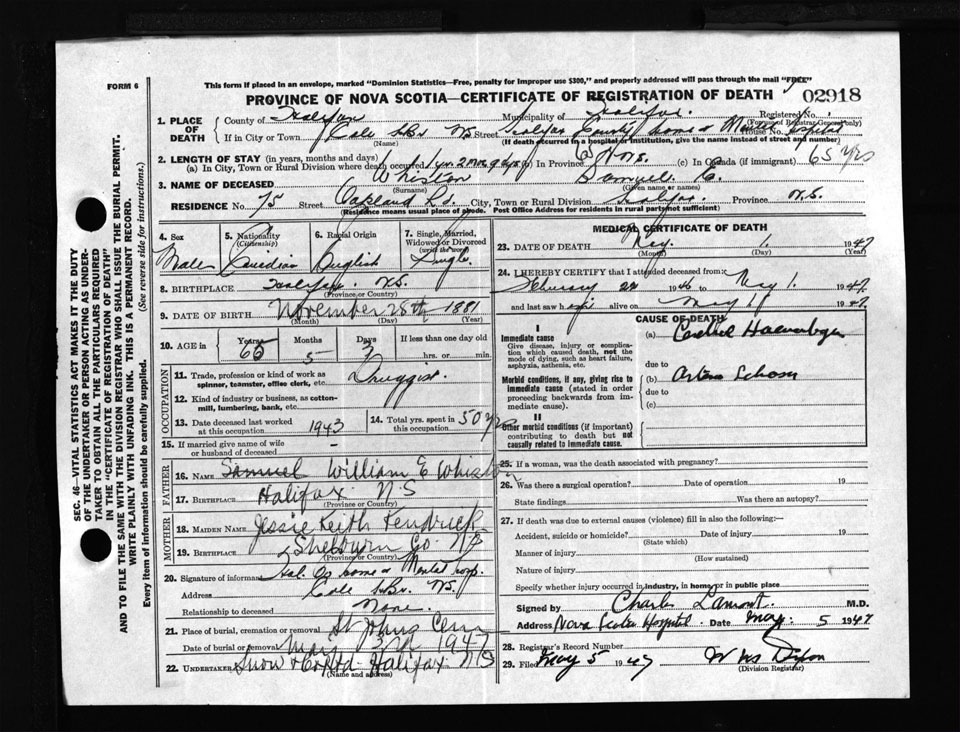 FORM 6
This form if placed in an envelope, marked "Dominion Statistics—Free, penalty for improper use $300," and properly addressed will pass through the mail "FREE"
PROVINCE OF NOVA SCOTIA—CERTIFICATE OF REGISTRATION OF DEATH 02918
1. PLACE OF DEATH County of Halifax Municipality of Halifax Registered No.
(For use of Registrar General only)
If in City or Town Cole Hbr NS Street Halifax County Home & Mental Hospital House No.
(Name) (If death occurred in a hospital or institution, give the name instead of street and number)
2. LENGTH OF STAY (in years, months and days)
(a) In City, Town or Rural Division where death occurred 1 yr. 2 mos. 9 dys (b) In Province (c) In Canada (if immigrant) 65 yrs
3. NAME OF DECEASED Whiston Samuel E.
(Surname) (Given name or names)
RESIDENCE No. 75 Street Oakland Rd. City, Town or Rural Division Halifax Province N.S.
(Residence means usual place of abode. Post Office Address for residents in rural parts not sufficient)
4. Sex Male
5. Nationality (Citizenship) Canadian
6. Racial Origin English
7. Single, Married, Widowed or Divorced (write the word) Single
8. BIRTHPLACE Halifax N.S.
(Province or Country)
9. DATE OF BIRTH November 28th 1881
(Month) (Day) (Year)
10. AGE in Years 65 Months 5 Days 3 If less than one day old hrs. or min.
OCCUPATION
11. Trade, profession or kind of work as spinner, teamster, office clerk, etc. Druggist
12. Kind of industry or business, as cotton-mill, lumbering, bank, etc.
13. Date deceased last worked at this occupation 1943
14. Total yrs. spent in this occupation 50 yrs
15. If married give name of wife or husband of deceased
FATHER
16. NAME Samuel William E Whiston
17. BIRTHPLACE Halifax N.S
MOTHER
18. MAIDEN NAME Jessie Keith Kendrick
19. BIRTHPLACE Shelburn Co. N.S
(Province or Country)
20. Signature of informant Hal. Co Home & Mental Hosp.
Address Cole Hbr. NS.
Relationship to deceased None.
21. Place of burial, cremation or removal St Johns Cem
Date of burial or removal May 3rd 1947
22. UNDERTAKER Snow & Co Ltd Halifax NS
(Name and address)
MEDICAL CERTIFICATE OF DEATH
23. DATE OF DEATH May 1. 1947
(Month) (Day) (Year)
24. I HEREBY CERTIFY that I attended deceased from:
February 22 1946 to May 1. 1947
and last saw him alive on May 1 1947
CAUSE OF DEATH
I
Immediate cause
Give disease, injury or complication which caused death, not the mode of dying, such as heart failure, asphyxia, asthenia, etc.
(a) Cerebral Haemorrhage
due to
Morbid conditions, if any, giving rise to immediate cause (stated in order proceeding backwards from immediate cause).
(b)
due to
(c)
II
Other morbid conditions (if important) contributing to death but not causally related to immediate cause.
25. If a woman, was the death associated with pregnancy?
26. Was there a surgical operation? Date of operation 19
State findings Was there an autopsy?
27. If death was due to external causes (violence) fill in also the following:—
Accident, suicide or homicide? Date of injury 19
(State which)
Manner of injury
(How sustained)
Nature of injury
Specify whether injury occurred in industry, in home, or in public place
Signed by Charles Lamont. M.D.
Address Nova Scotia Hospital. Date May. 5 1947
28. Registrar's Record Number
29. Filed May 5 1947 W Dixon
(Division Registrar)
SEC. 46—VITAL STATISTICS ACT MAKES IT THE DUTY
OF THE UNDERTAKER OR PERSON ACTING AS UNDERTAKER TO OBTAIN ALL THE PARTICULARS REQUIRED
IN THE "CERTIFICATE OF REGISTRATION OF DEATH"
AND TO FILE THE SAME WITH THE DIVISION REGISTRAR WHO SHALL ISSUE THE BURIAL PERMIT.
WRITE PLAINLY WITH UNFADING INK. THIS IS A PERMANENT RECORD.
Every item of information should be carefully supplied. (See reverse side for instructions.)